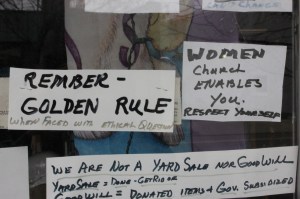 REMBER -
GOLDEN RULE
WHEN FACED WITH ETHICAL
WOMEN
Church
ENABLES
YOU.
RESPECT YOURSELF
WE ARE NOT A YARD SALE NOR GOODWILL
YARD SALE = DONE - GET RID OF
GOODWILL = DONATED ITEMS & GOV. SUBSIDIZED